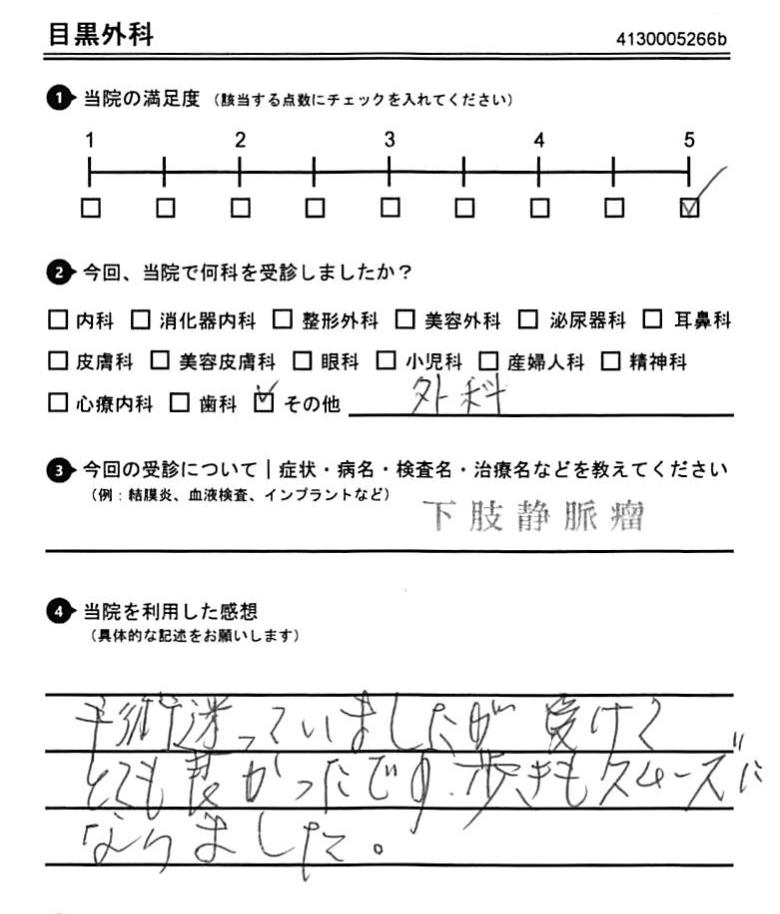 目黒外科
4130005266b
1 当院の満足度 (該当する点数にチェックを入れてください)
1 2 3 4 5
2 今回、当院で何科を受診しましたか?
内科 消化器内科 整形外科 美容外科 泌尿器科 耳鼻科
皮膚科 美容皮膚科 眼科 小児科 産婦人科 精神科
心療内科 歯科 その他 外科
3 今回の受診について | 症状・病名・検査名・治療名などを教えてください
(例:結膜炎、血液検査、インプラントなど)
下肢静脈瘤
4 当院を利用した感想
(具体的な記述をお願いします)
手術迷っていましたが 受けて
とても良かったです。歩きもスムーズに
なりました。